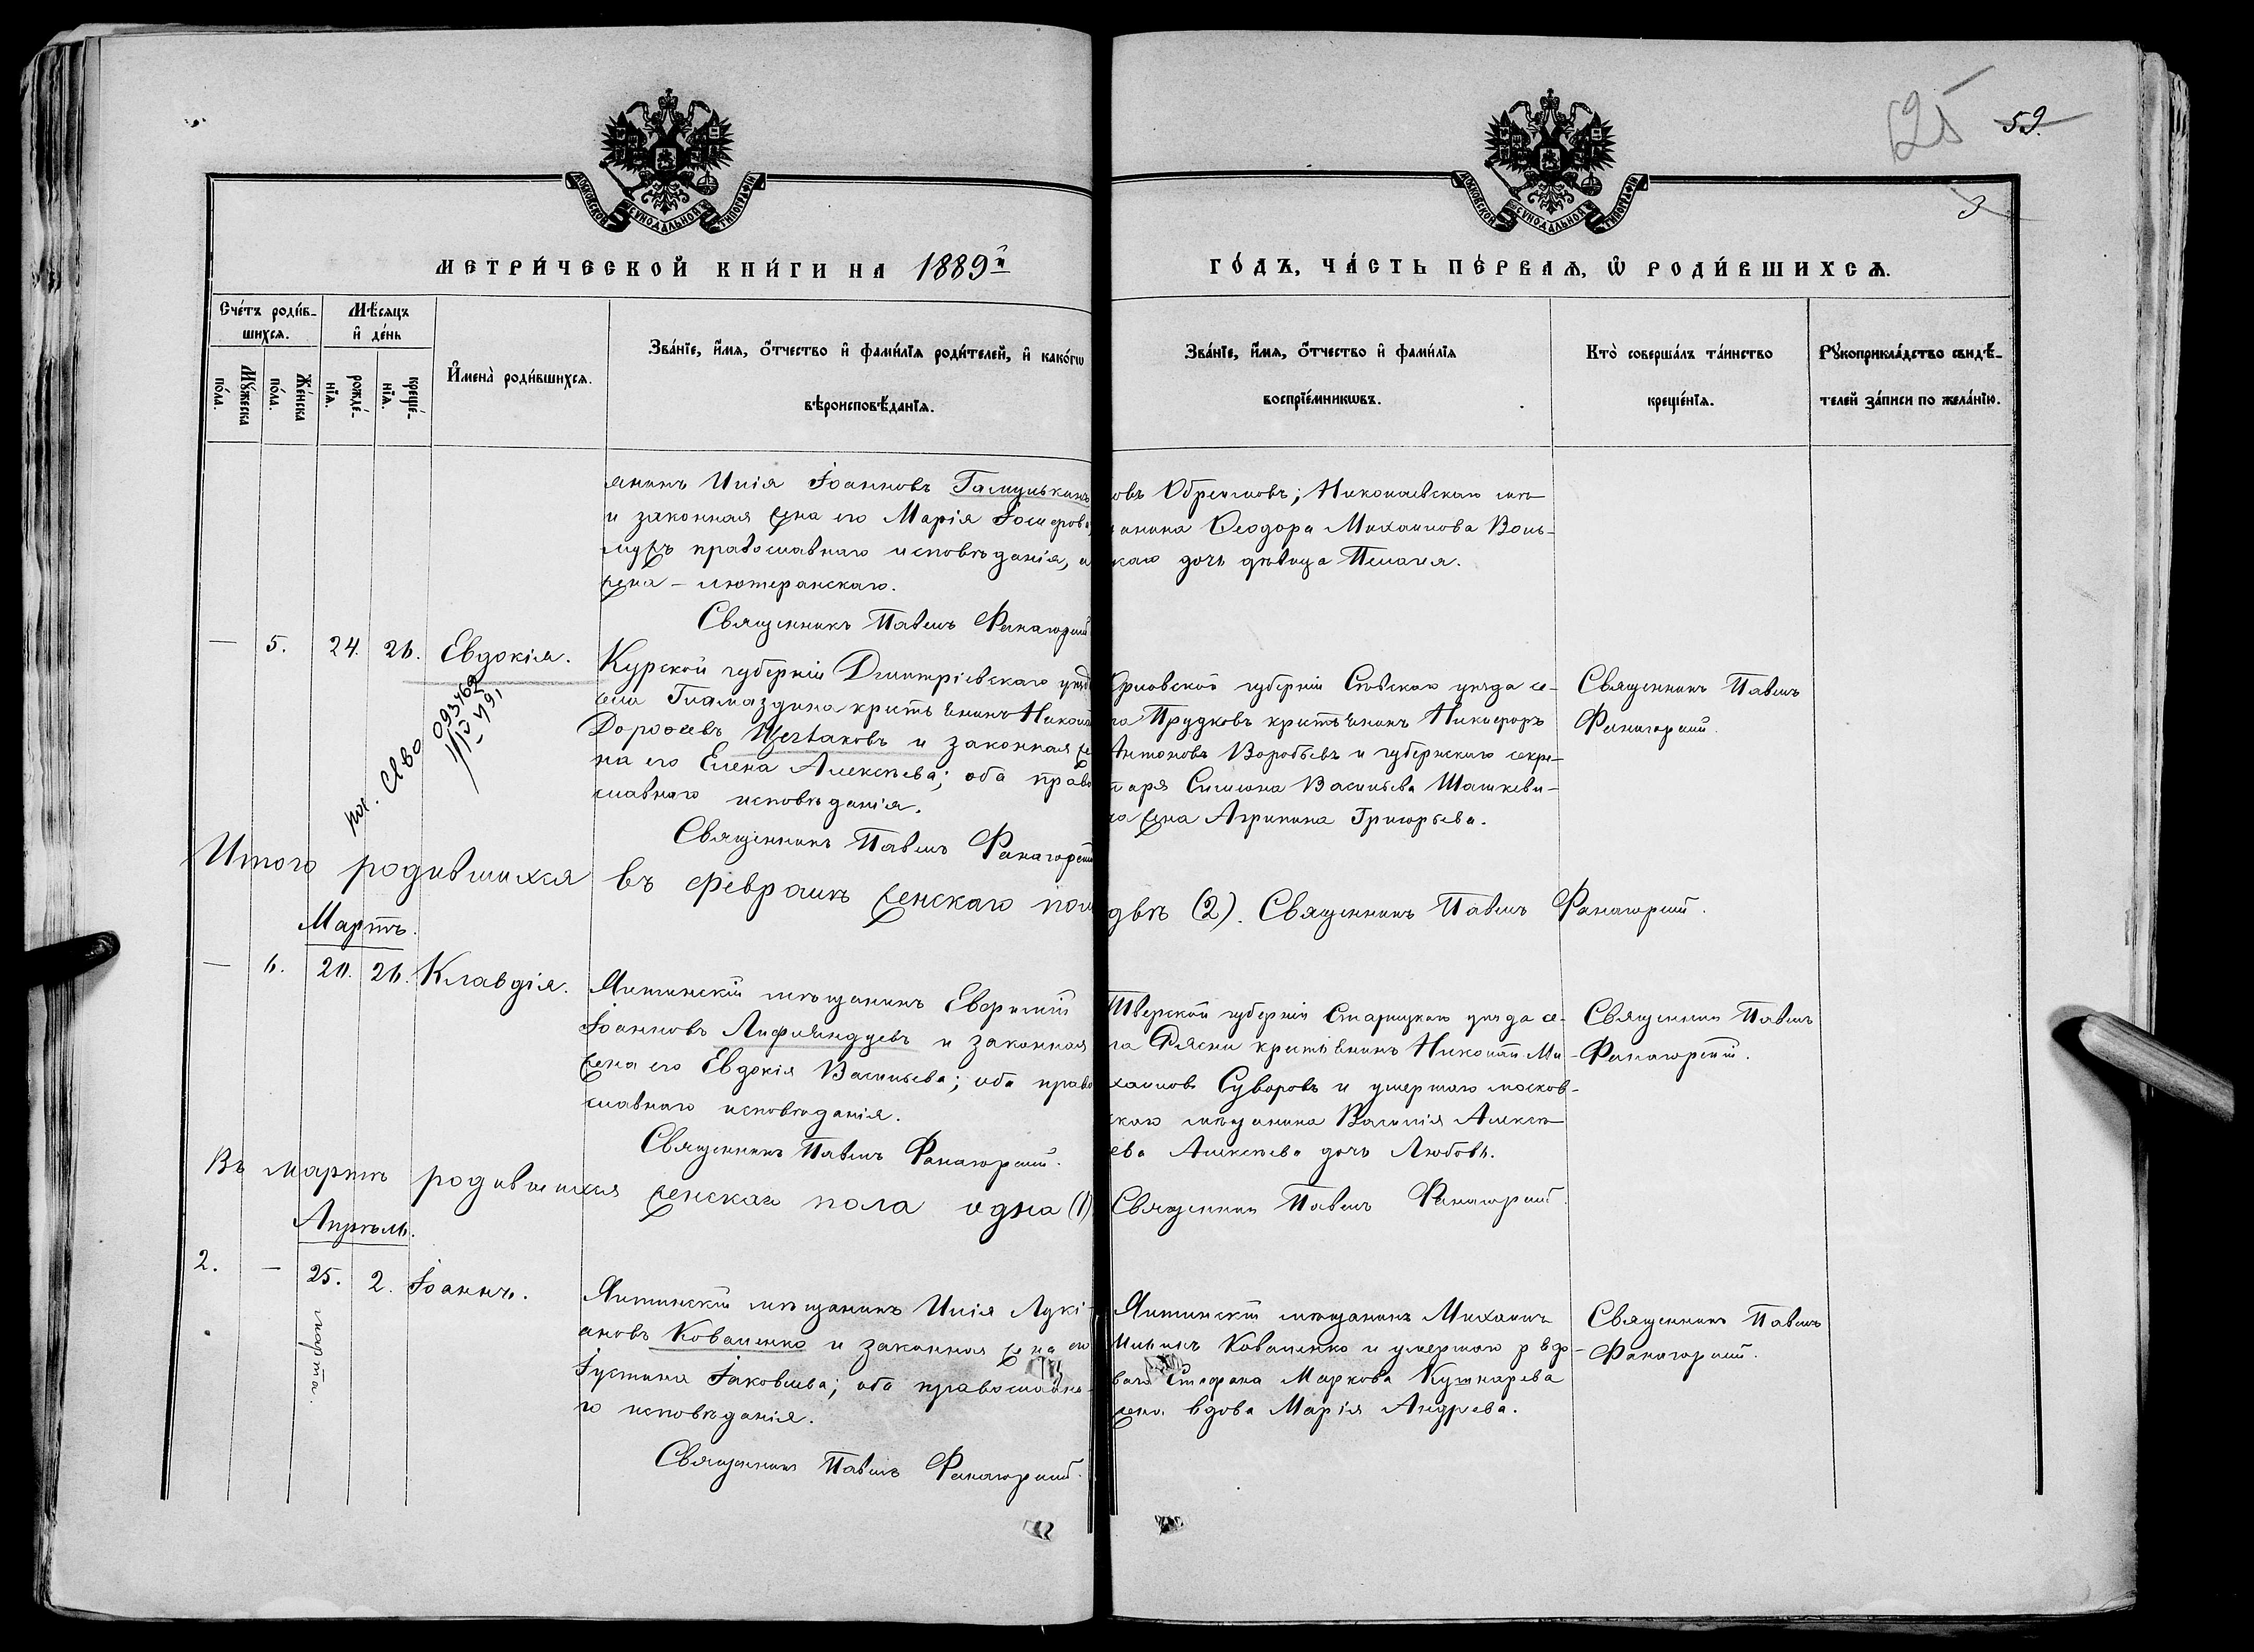 125 59.
3
МОСКОВСКОЙ СѴНОДАЛЬНОЙ ТИПОГРАФІИ
МОСКОВСКОЙ СѴНОДАЛЬНОЙ ТИПОГРАФІИ
МЕТРИ́ЧЕСКОЙ КНИ́ГИ НА 1889й
ГО́ДЪ, ЧА́СТЬ ПЕ́РВАѦ, Ѽ РОДИ́ВШИХСѦ.
Сче́тъ роди́в-
шихсѧ.
Мꙋ́жеска
по́ла.
Же́нска
по́ла.
Мѣ́сѧцъ
и҆ де́нь
рожде́-
нїѧ.
креще́-
нїѧ.
И҆мена̀ роди́вшихсѧ.
Зва́нїе, и҆́мѧ, ѻ҆́тчество и҆ фами́лїѧ роди́телей, и҆ како́гѡ
вѣроисповѣ́данїѧ.
Зва́нїе, и҆́мѧ, ѻ҆́тчество и҆ фами́лїѧ
воспрїе́мникѡвъ.
Кто̀ соверша́лъ та́инство
креще́нїѧ.
Рꙋкоприкла́дство свидѣ́-
телей за́писи по жела́нїю.
янинъ Илія Іоанновъ
и законная жена его Марія Іосифова,
мужъ православнаго исповѣданія, а
жена – лютеранскаго.
Священникъ Павелъ Фанагорскій
овъ Обрезковъ; Николаевскаго мѣ-
щанина Ѳеодора Михаилова Воль-
скаго дочь дѣвица Пелагея.
— 5. 24. 26. Евдокія.
Курской губерніи Дмитріевскаго уѣзда
села Гламаздина крестьянинъ Николай
Дороѳеевъ и законная же-
на его Елена Алексѣева; оба право-
славнаго исповѣданія.
Священникъ Павелъ Фанагорскій
Орловской губерніи Сѣвскаго уѣзда се-
ла Прудковъ крестьянинъ Никифоръ
Антоновъ Воробьевъ и губернскаго секре-
таря Симеона Васильева Машкеви-
ча жена Агрипина Григорьева.
Священникъ Павелъ
Фанагорскій.
Итого родившихся въ февралѣ женскаго пола
двѣ (2). Священникъ Павелъ Фанагорскій.
Мартъ.
— 6. 20. 26. Клавдія.
Ялтинскій мѣщанинъ Евфимій
Іоанновъ Лифляндцевъ и законная
жена его Евдокія Васильева; оба право-
славнаго исповѣданія.
Священникъ Павелъ Фанагорскій.
Тверской губерніи Старицкаго уѣзда се-
ла Рясни крестьянинъ Николай Ми-
хаиловъ Суворовъ и умершаго москов-
скаго мѣщанина Василія Алексѣ-
ева Алексѣева дочь Любовь.
Священникъ Павелъ
Фанагорскій.
Въ мартѣ родившихся женскаго пола одна (1)
Священникъ Павелъ Фанагорскій.
Апрѣль.
2. — 25. марта. 2. Іоаннъ.
Ялтинскій мѣщанинъ Илія Лукі-
ановъ Коваленко и законная жена его
Іустина Іаковлева; оба православна-
го исповѣданія.
Священникъ Павелъ Фанагорскій.
Ялтинскій мѣщанинъ Михаилъ
Ильинъ Коваленко и умершаго рядо-
ваго Стефана Маркова Кушнарева
жена вдова Марія Андреева.
Священникъ Павелъ
Фанагорскій.